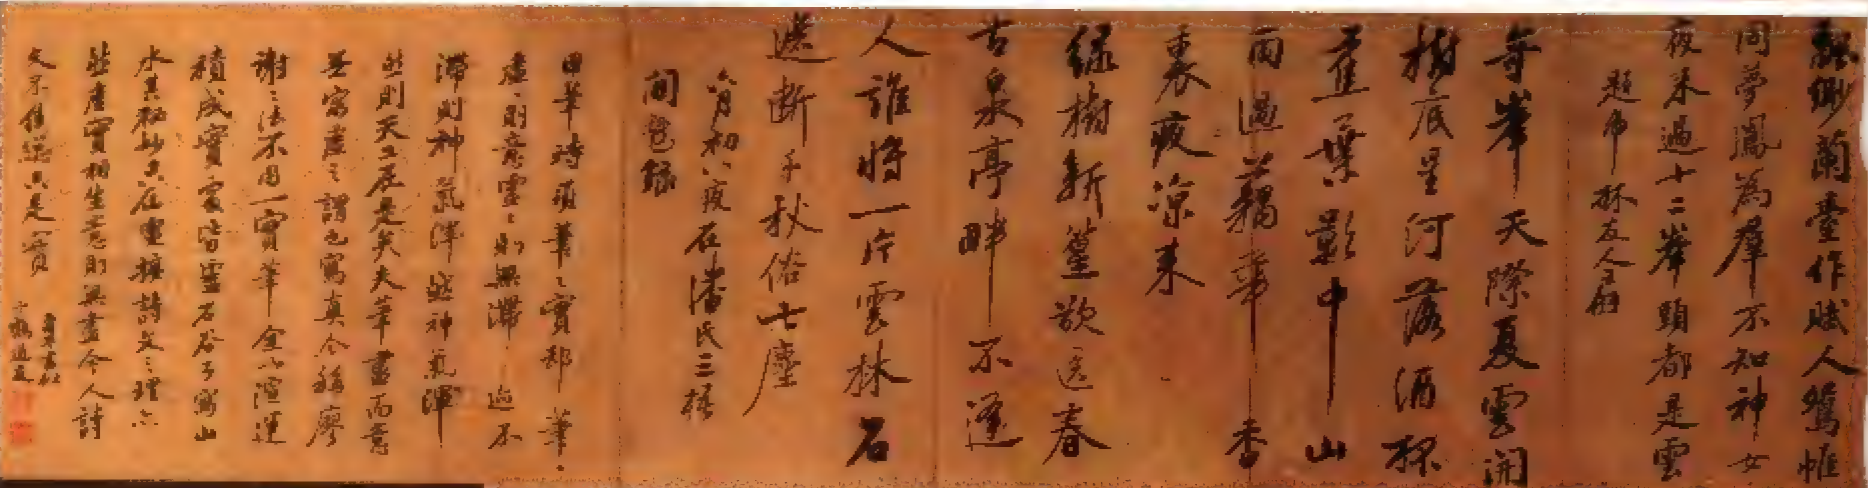 緲蘭臺作賦人鴛帷
同夢鳳為羣不知神女
夜來過十二峯頭都是雲
題 林友人
奇峯天際夏雲開
樹底星河落酒杯
蕉葉影中山
雨過藕華香
裏夜涼來
綠樹新篁欲送春
古泉亭畔不逢
人誰將一片雲林石
遮斷千秋俗士塵
六月初八夜在潘氏三椽
間 錄
用筆時須筆筆實卻筆筆
虛虛則意靈靈則無滯迹不
滯則神氣渾然神氣渾
然則天工在是矣夫筆盡而意
無窮虛之謂也寫真今稱廖
謝謝法不用一實筆全以渲運
積成實處皆靈石谷子寫山
水其秘妙亦在虛 詩文之理亦
然虛實相生意則無盡今人詩
文不佳總只是實